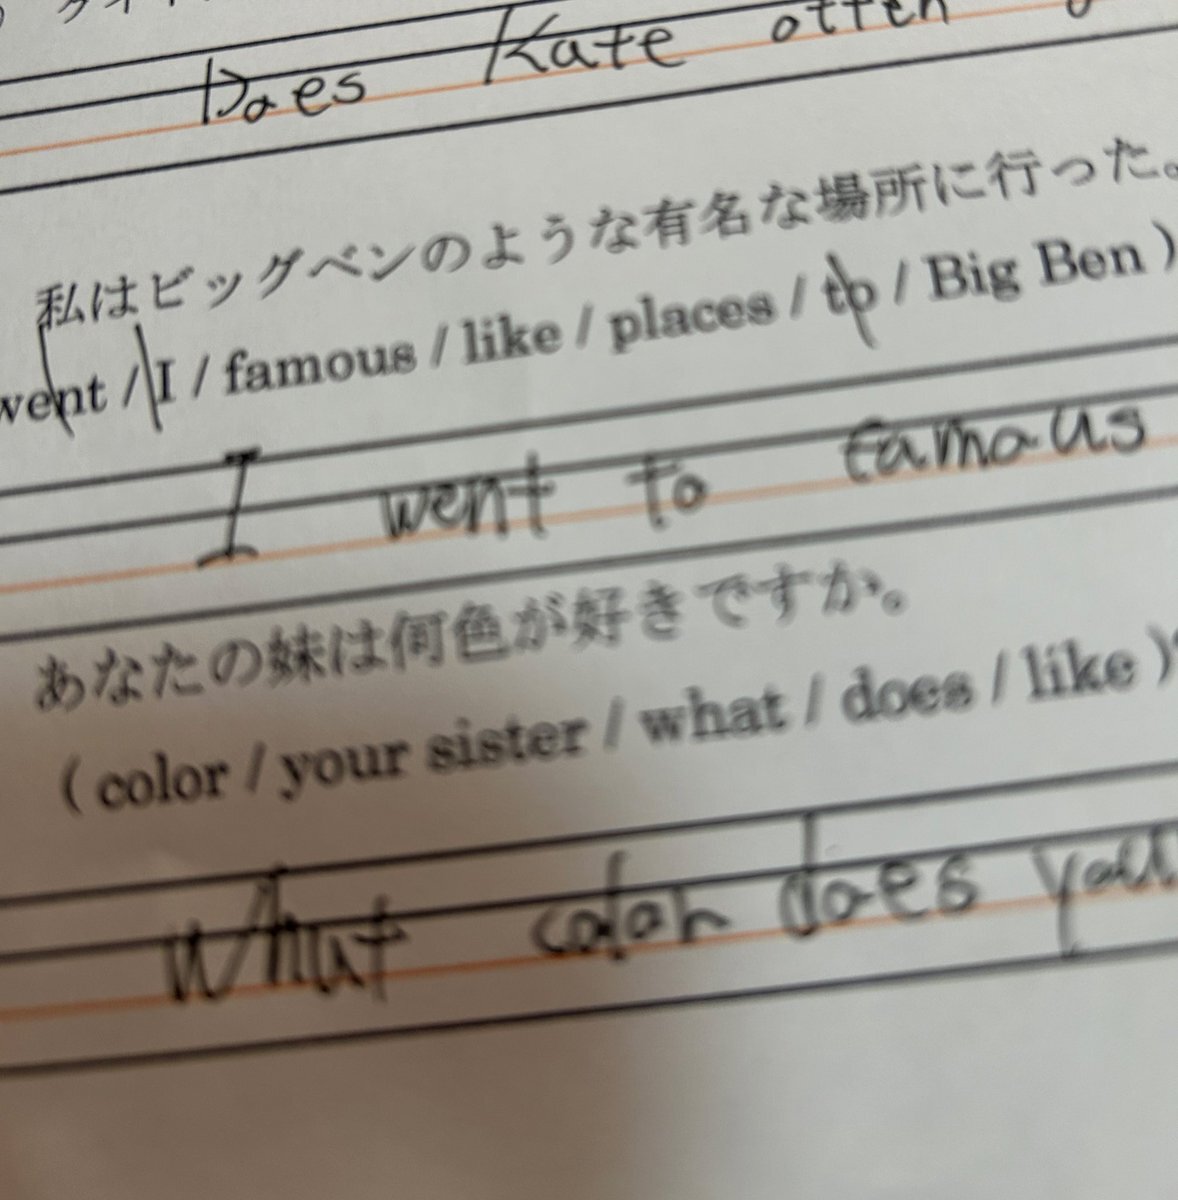 Does Kate often
私はビッグベンのような有名な場所に行った。
went / I / famous / like / places / to / Big Ben )
I went to famous
あなたの妹は何色が好きですか。
( color / your sister / what / does / like )
What color does you